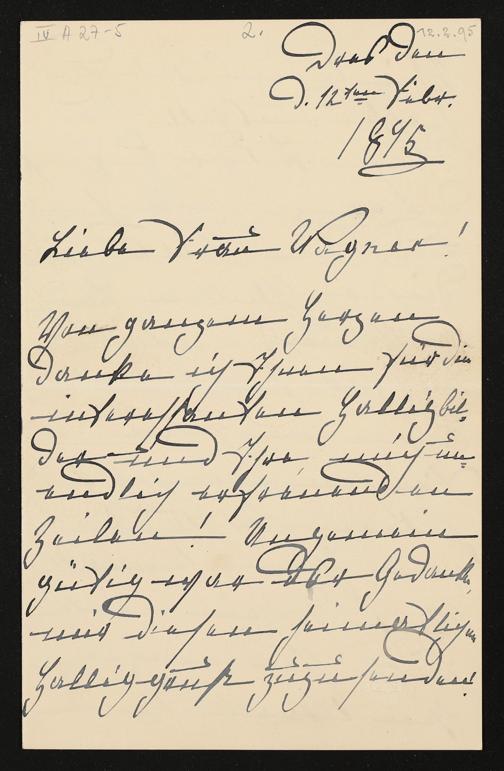 IV A 27-5 2. 12.2.95
Dresden
d. 12ten Febr.
1895
Liebe Frau Wagner!
Von ganzem Herzen
danke ich Ihnen für die
interessanten Halligbil-
der und Ihre mich un-
endlich erfreuenden
Zeilen! Ungemein
gütig war der Gedanke,
mir diesen heimathlichen
Halliggruß zuzusenden!